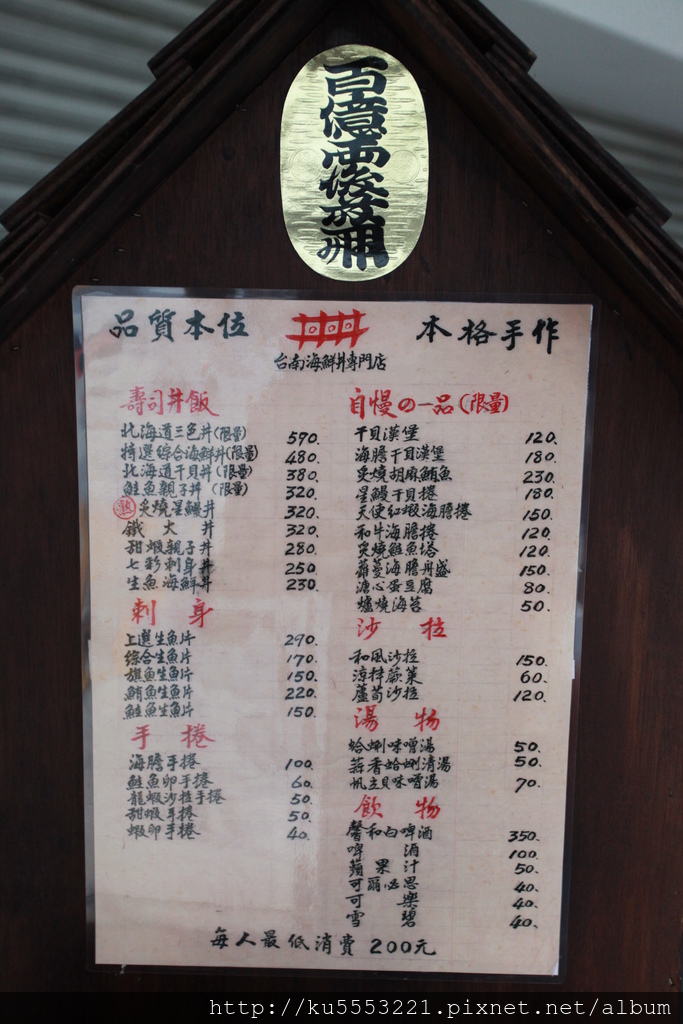 品質本位
本格手作
台南海鮮丼專門店
壽司丼飯
北海道三色丼(限量) 590.
特選綜合海鮮丼(限量) 480.
北海道干貝丼(限量) 380.
鮭魚親子丼(限量) 320.
熟 炙燒星鰻丼 320.
鐵火丼 320.
甜蝦親子丼 280.
七彩刺身丼 250.
生魚海鮮丼 230.
刺身
上選生魚片 290.
綜合生魚片 170.
旗魚生魚片 150.
鮪魚生魚片 220.
鮭魚生魚片 150.
手捲
海膽手捲 100.
鮭魚卵手捲 60.
龍蝦沙拉手捲 50.
甜蝦手捲 50.
蝦卵手捲 40.
自慢の一品(限量)
干貝漢堡 120.
海膽干貝漢堡 180.
炙燒胡麻鮪魚 230.
星鰻干貝捲 180.
天使紅蝦海膽捲 150.
和牛海膽捲 120.
炙燒鮭魚塔 120.
蘿蔓海膽舟盛 150.
溏心蛋豆腐 80.
爐燒海苔 50.
沙拉
和風沙拉 150.
涼拌蕨菜 60.
蘆筍沙拉 120.
湯物
蛤蜊味噌湯 50.
蒜香蛤蜊清湯 50.
帆立貝味噌湯 70.
飲物
馨和白啤酒 350.
啤酒 100.
蘋果汁 50.
可爾必思 40.
可樂 40.
雪碧 40.
每人最低消費 200元
http://ku5553221.pixnet.net/album